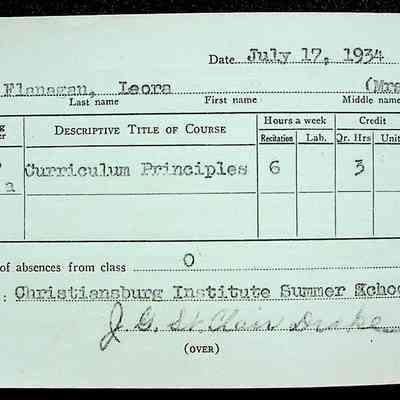 Date July 17, 1934
Flanagan, Leora (Mrs
Last name First name Middle name
Descriptive Title of Course Hours a week Credit
Recitation Lab. Qr. Hrs Unit
a Curriculum Principles 6 3
of absences from class 0
: Christiansburg Institute Summer Schoo
J. G. St. Clair Drake
(OVER)